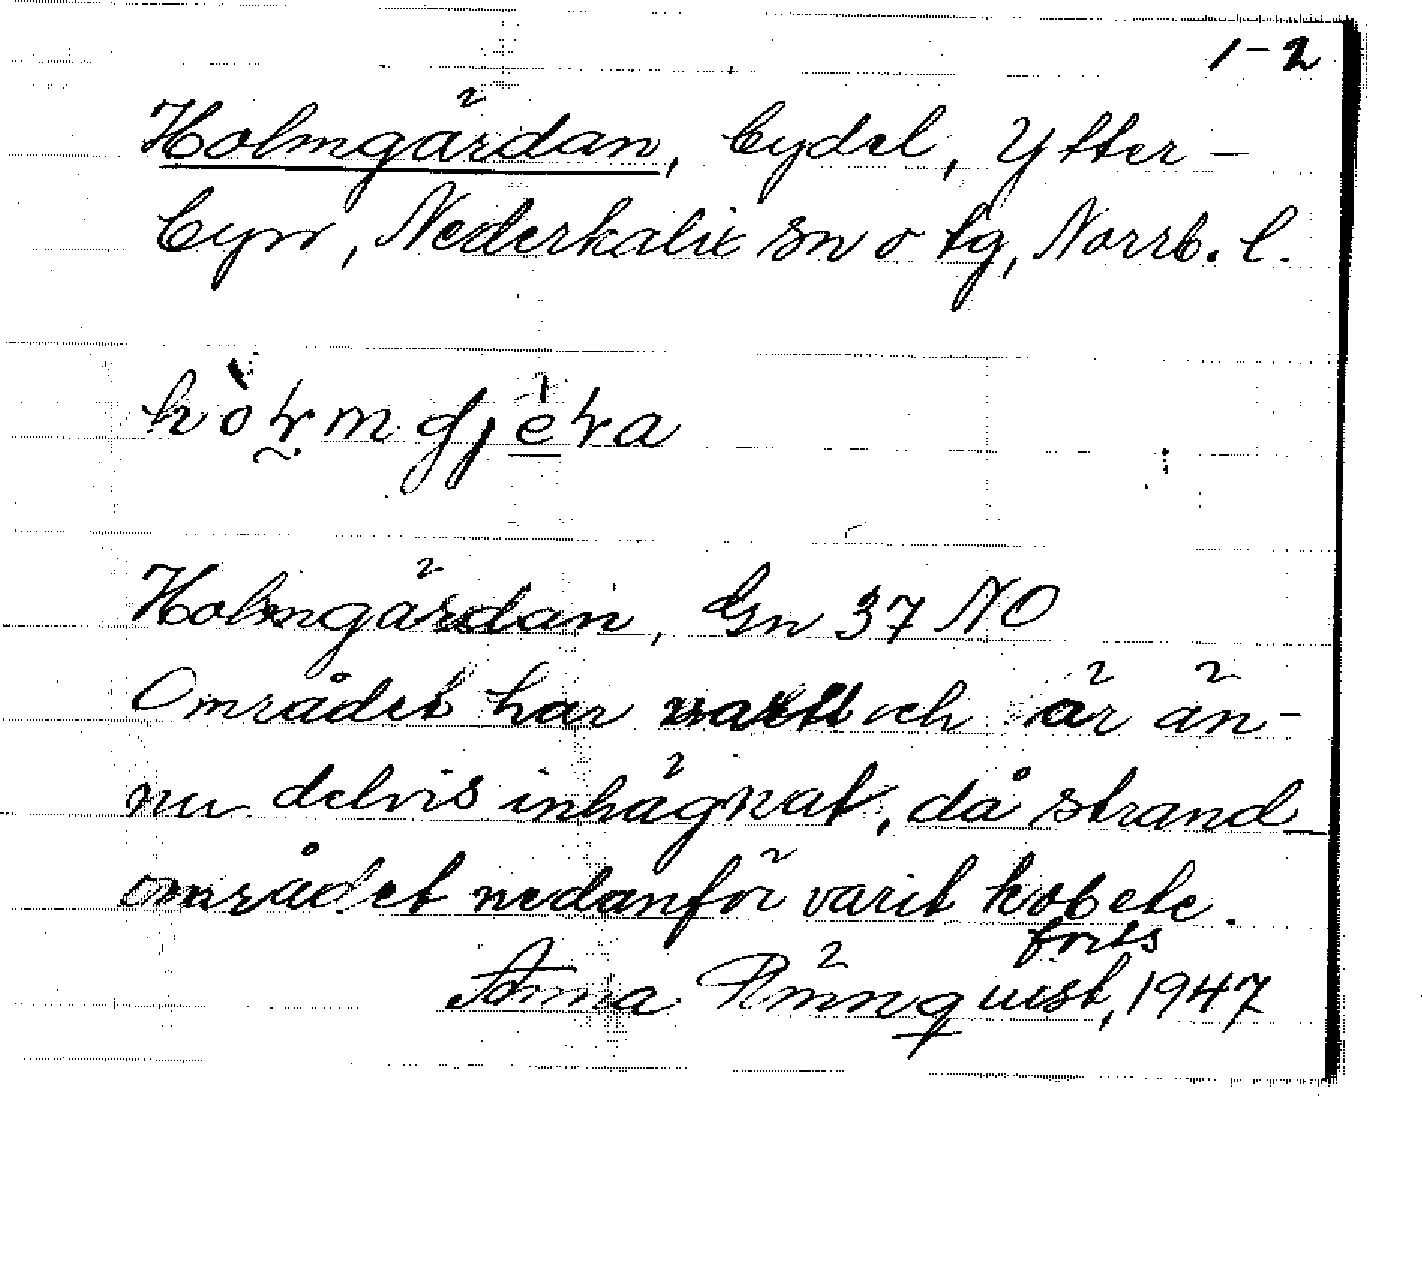 1-2
Holmgärdan, bydel, Ytter-
byn, Nederkalix sn o tg, Norrb. l.
Holmgärdan, Gn 37 NO
Området har varit och är än-
nu delvis inhägnat, då strand-
området nedanför varit kobete.
forts
Anna Rönnquist, 1947